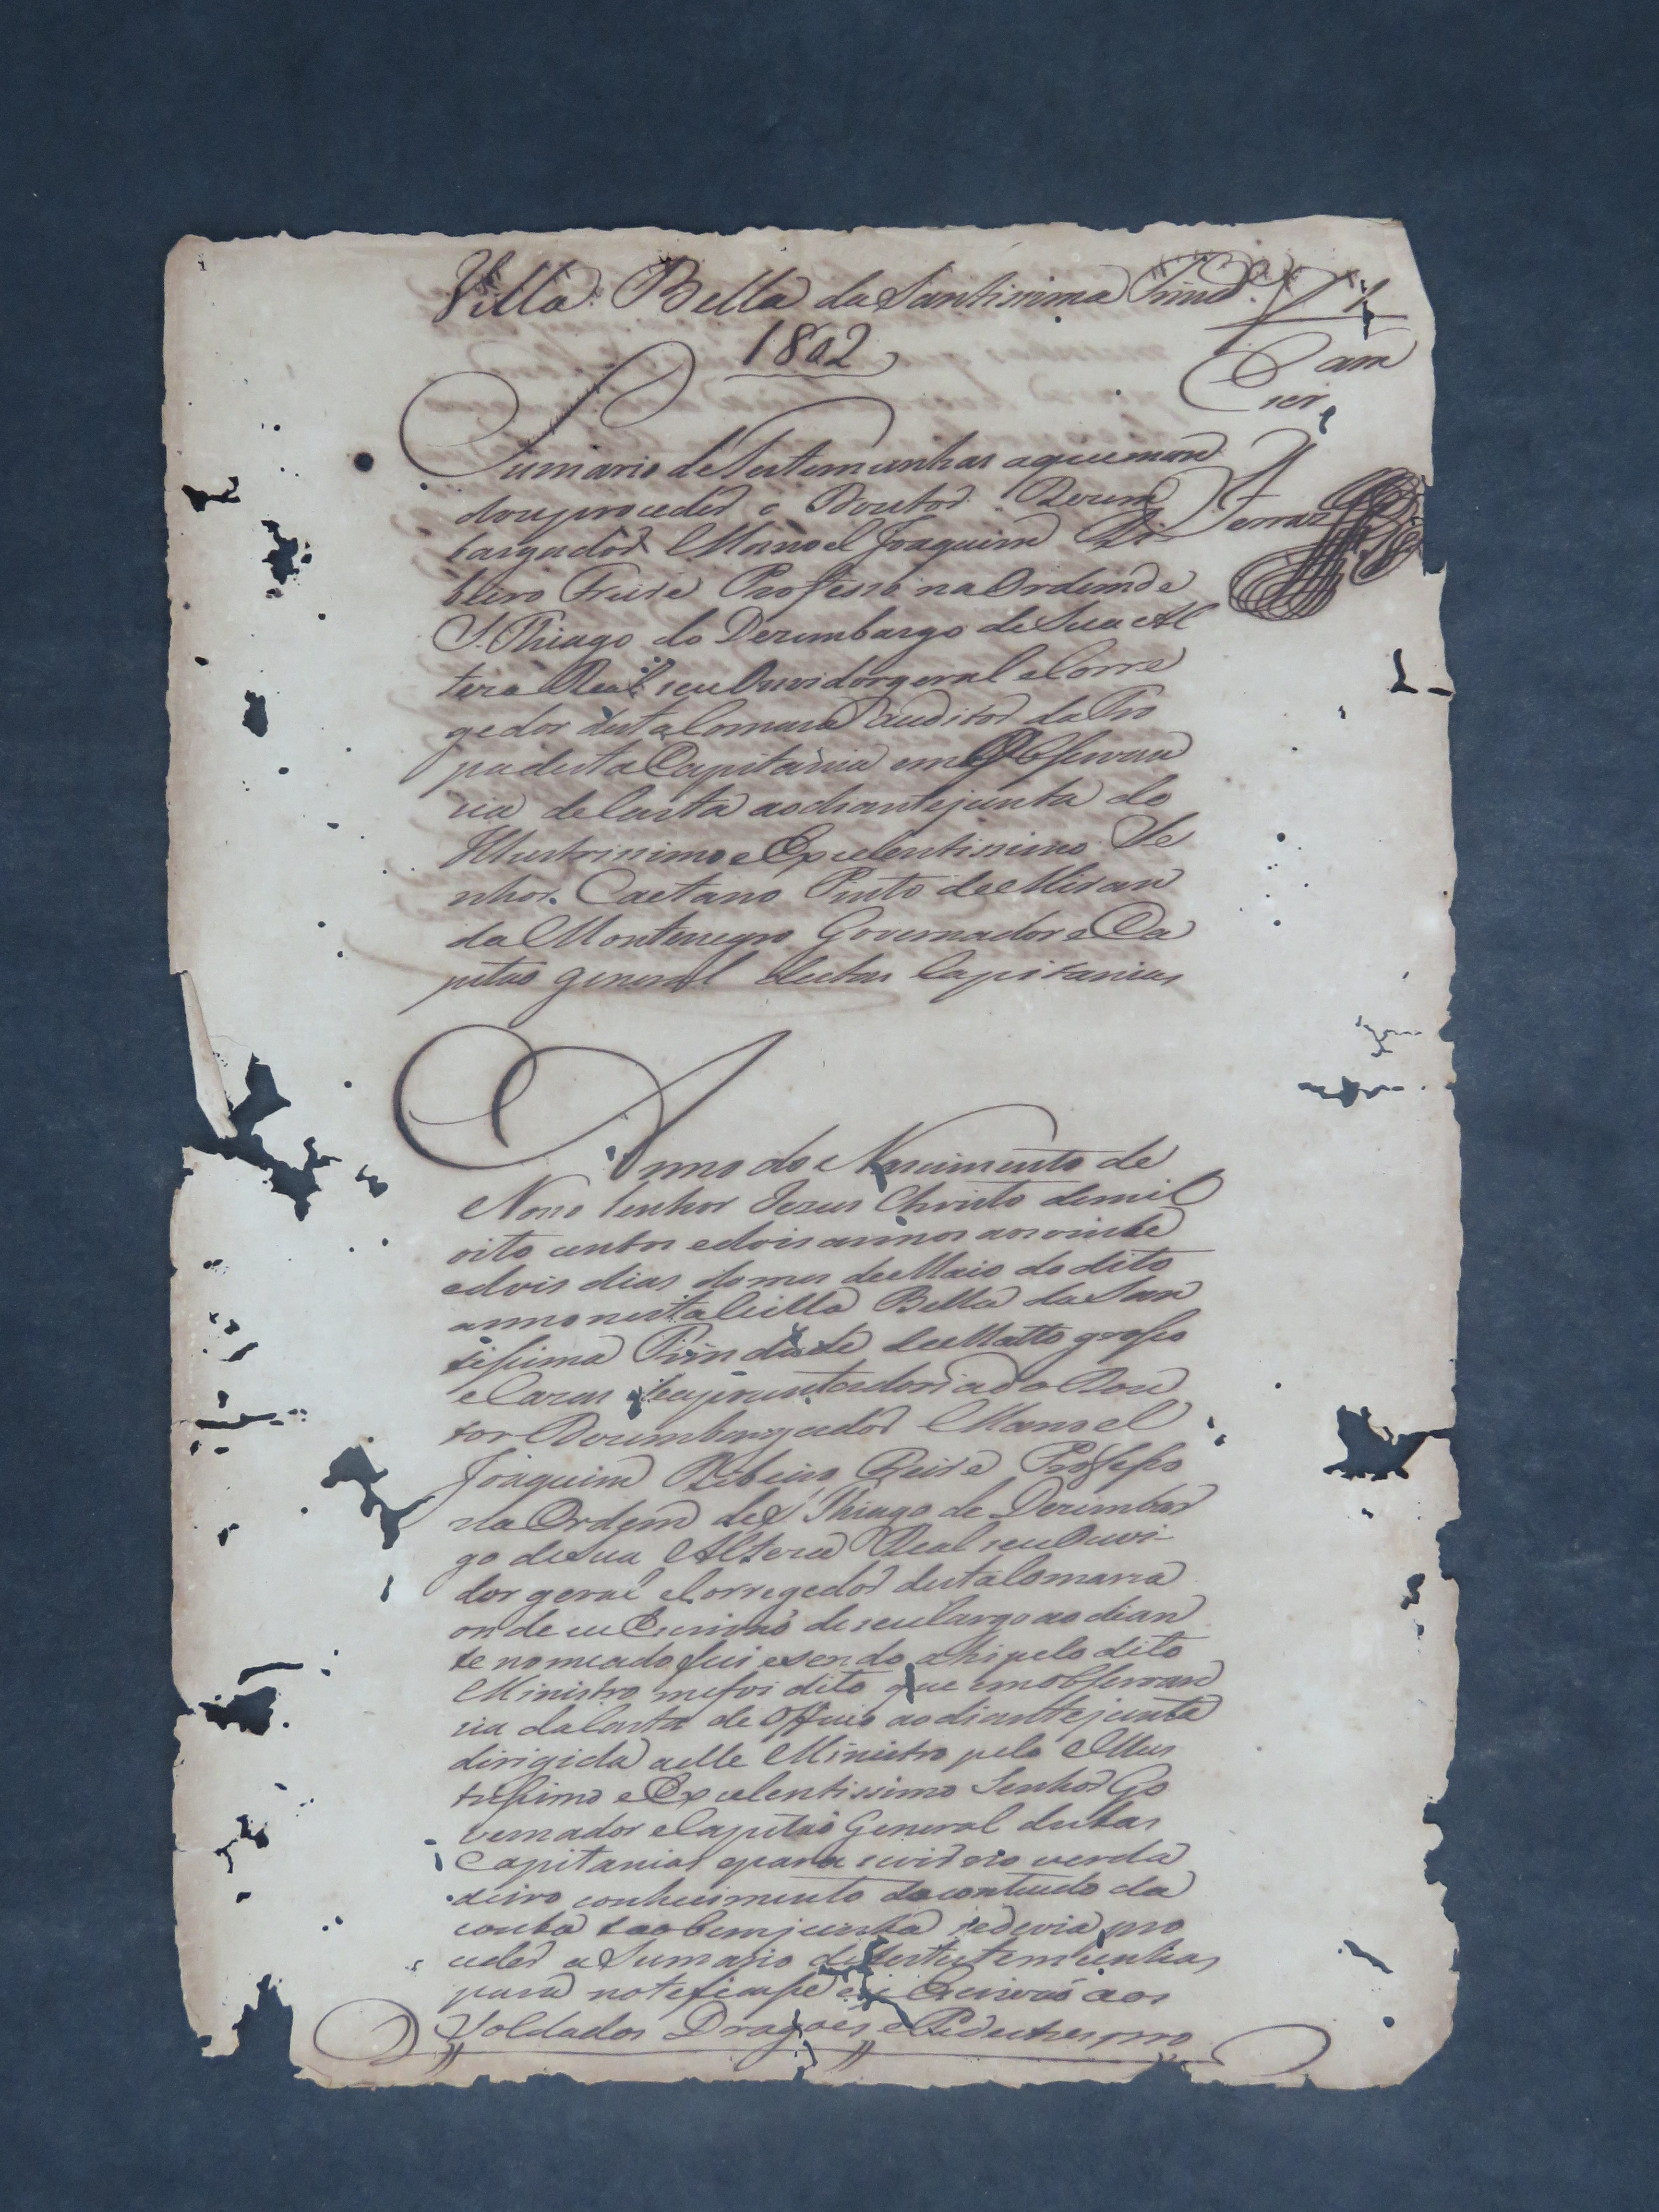 Villa Bella da Santissima Trind.e
1802
Cam
rer
Ferraz
Sumario de Testemunhas a que man
dou proceder o Doutor Dezem
bargador Manoel Joaquim Ri
beiro Freire Professo na Ordem de
S. Thiago do Dezembargo de Sua Al
teza Real seu Ouvidor geral e Corre
gedor desta Comarca e auditor da Tro
pa desta Capitania em Observan
cia de Carta ao diante junta do
Illustrissimo e Excelentissimo Se
nhor Caetano Pinto de Miran
da Montenegro Governador e Ca
pitão general destas Capitanias
Anno do Nascimento de
Nosso Senhor Jezus Christo de mil
oito centos e dois annos aos vinte
e dois dias do mes de Maio do dito
anno nesta Villa Bella da San
tissima Trindade de Matto grosso
e Cazas de apozentadoria do Dou
tor Dezembargador Manoel
Joaquim Ribeiro Freire Professo
na Ordem de S. Thiago do Dezembar
go de Sua Alteza Real seu Ouvi-
dor geral e Corregedor desta Comarca
onde eu Escrivão de seu Cargo ao dian
te nomeado fui e sendo ahi pelo dito
Ministro me foi dito que em observan
cia da Carta de Officio ao diante junta
dirigida a elle Ministro pelo Illus
trissimo e Excelentissimo Senhor Go
vernador e Capitão General destas
Capitanias e para se vir no verda
deiro conhecimento do contiudo da
conta tãobem junta se devia pro
ceder a Sumario de testetemunhas
para notificasse eu Escrivão aos
Soldados Dragoes e Pedestres pro